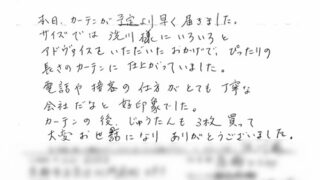 本日、カーテンが予定より早く届きました。
サイズでは浅川様にいろいろと
アドヴァイスをいただいたおかげで、ぴったりの
長さのカーテンに仕上がっていました。
電話や接客の仕方がとても丁寧な
会社だなと好印象でした。
カーテンの後、じゅうたんも3枚買って
大変お世話になりありがとうございました。